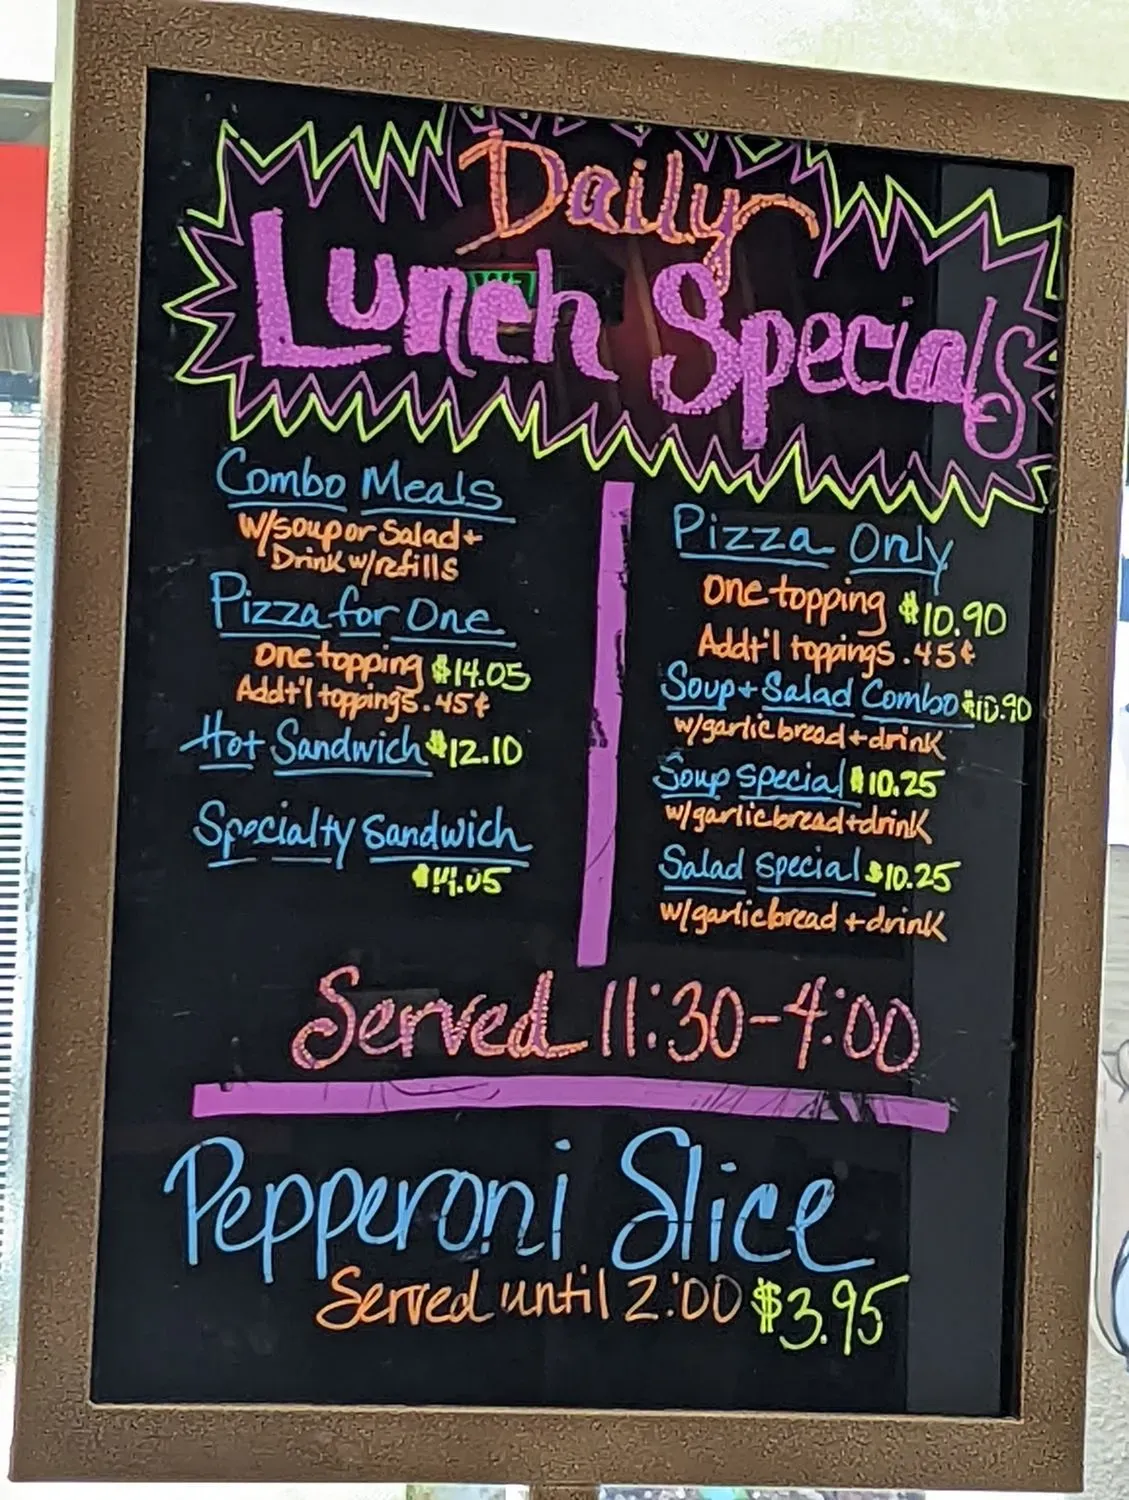 Daily
Lunch Specials
Combo Meals
w/soup or Salad +
Drink w/refills
Pizza for One
one topping $14.05
Addt'l toppings .45¢
Hot Sandwich $12.10
Specialty Sandwich
$14.05
Pizza Only
one topping $10.90
Addt'l toppings .45¢
Soup + Salad Combo $10.90
w/garlic bread + drink
Soup special $10.25
w/garlic bread + drink
Salad special $10.25
w/garlic bread + drink
Served 11:30-4:00
Pepperoni Slice
Served until 2:00 $3.95